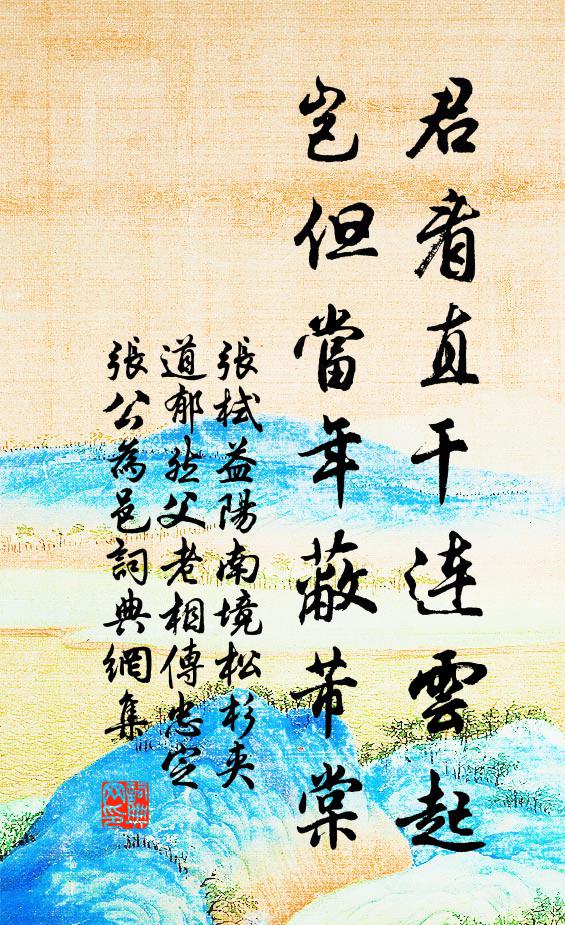 君看直干連雲起
豈但當年蔽芾棠
張栻益陽南境松杉夾
道郁然父老相傳忠定
張公為邑詞典網集